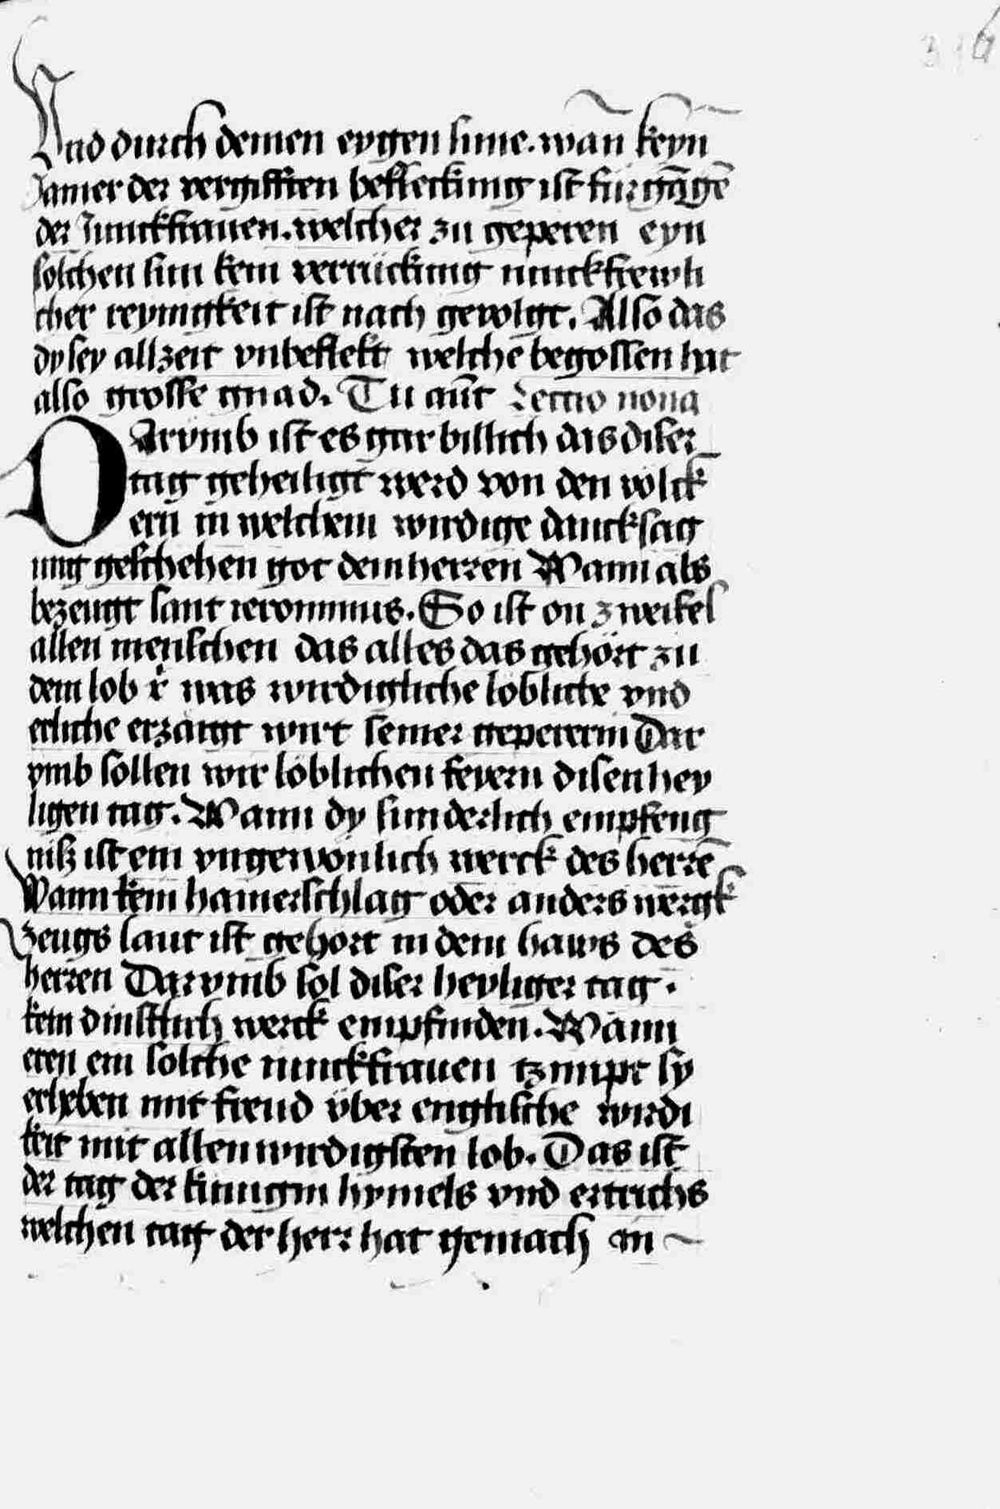 Vnd durch deinen eygen sune. wan̄ keyn̄
Jamer der vergifften befleckung ist fürgāgē
der Junckfrauen. welcher zu geperen eyn
solchen sun kein verrückung iunckfrewli
cher reynigkeit ist nach gevolgt. Also das
dy sey allzeit vnbeflekt welche begossen hat
also grosse gnad. Tu aūt Lectio nona
DArvmb ist es gar billich das diser
tag geheiligt werd von den volck
ern in welchem wirdige dancksag
ung geschehen got dem herren Wann als
bezeugt sant ieronimus. So ist on zweifel
allen menschen das alles das gehört zu
dem lob was wirdigliche löbliche vnd
erliche erzaigt wirt seiner gepererin Dar
vmb sollen wir löblichen feyern disen hey
ligen tag. Wann dy sunderlich empfeng
nisz ist ein vngewönlich werck des herrē
Wann kein hamerschlag oder anders wergk
zeugs laut ist gehort in dem haws des
herren Darvmb sol diser heyliger tag.
kein dinstlich werck empfinden. Wann
eren ein solche iunckfrauen tzimpt sy
erheben mit freud über englische wirdi
keit mit allen wirdigsten lob. Das ist
der tag der kunigin hymels vnd ertrichs
welchen tag der herr hat gemach in